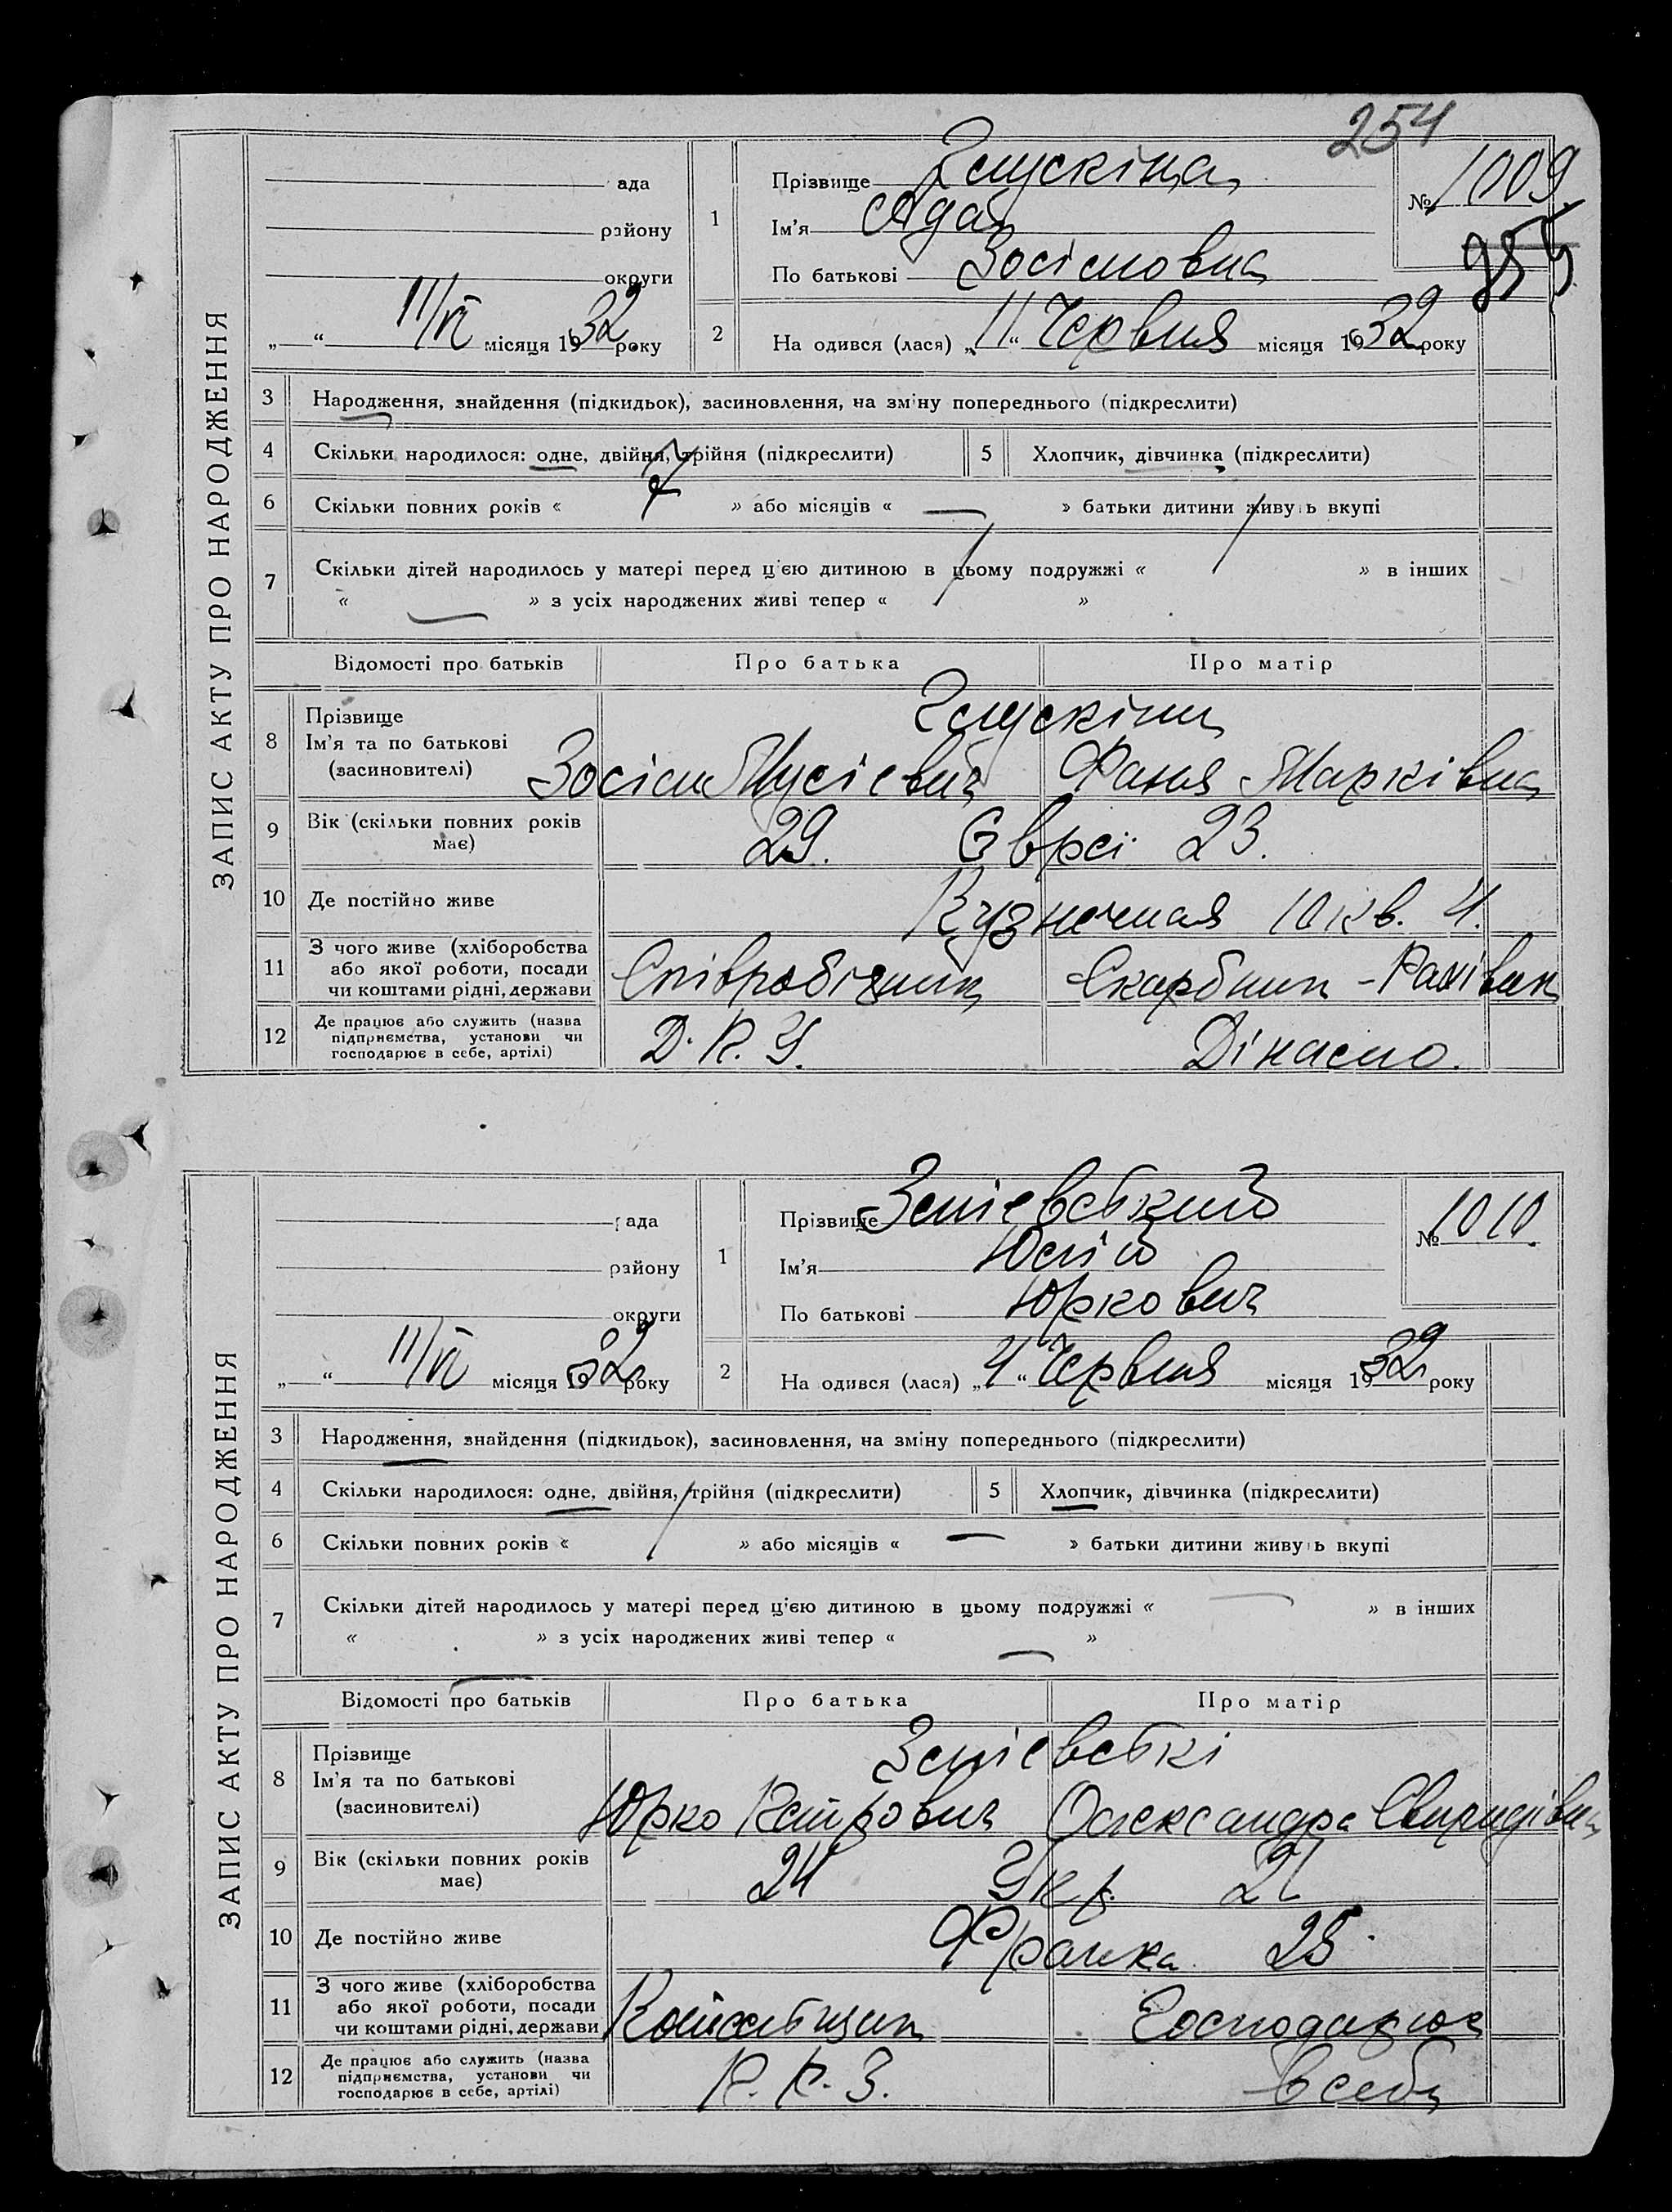 254
ЗАПИС АКТУ ПРО НАРОДЖЕННЯ
ада
району
округи
11/VI місяця 1932 року
1
Прізвище Глускіна
Ім'я Ада
По батькові Зосімовна
№ 1009
955
2
На одився (лася) „11“ Червня місяця 1932 року
3 Народження, знайдення (підкидьок), засиновлення, на зміну попереднього (підкреслити)
4 Скільки народилося: одне, двійня, трійня (підкреслити) 5 Хлопчик, дівчинка (підкреслити)
6 Скільки повних років « » або місяців « — » батьки дитини живу ь вкупі
7 Скільки дітей народилось у матері перед ц'єю дитиною в цьому подружжі « » в інших
« — » з усіх народжених живі тепер « »
Відомості про батьків Про батька Про матір
8 Прізвище Глускіни
Ім'я та по батькові Зосім Мусієвич Фаня Марківна
(засиновителі)
9 Вік (скільки повних років має) 29. Євреї 23.
10 Де постійно живе Кузнечная 10 кв. 4.
11 З чого живе (хліборобства або якої роботи, посади чи коштами рідні, держави Співробітник Скарбник - Рахівник
12 Де працює або служить (назва підприємства, установи чи господарює в себе, артілі) Д. П. У. Дінамо.
ЗАПИС АКТУ ПРО НАРОДЖЕННЯ
ада
району
округи
11/VI місяця 1932 року
1
Прізвище Змієвський
Ім'я Юлій
По батькові Юркович
№ 1010.
2
На одився (лася) „4“ Червня місяця 1932 року
3 Народження, знайдення (підкидьок), засиновлення, на зміну попереднього (підкреслити)
4 Скільки народилося: одне, двійня, трійня (підкреслити) 5 Хлопчик, дівчинка (підкреслити)
6 Скільки повних років « » або місяців « — » батьки дитини живу ь вкупі
7 Скільки дітей народилось у матері перед ц'єю дитиною в цьому подружжі « — » в інших
« » з усіх народжених живі тепер « — »
Відомості про батьків Про батька Про матір
8 Прізвище Змієвські
Ім'я та по батькові Юрко Петрович Олександра Свиридівна
(засиновителі)
9 Вік (скільки повних років має) 24 Укр. 21
10 Де постійно живе Франка 25
11 З чого живе (хліборобства або якої роботи, посади чи коштами рідні, держави Господарює
12 Де працює або служить (назва підприємства, установи чи господарює в себе, артілі) К. К. З. в себе